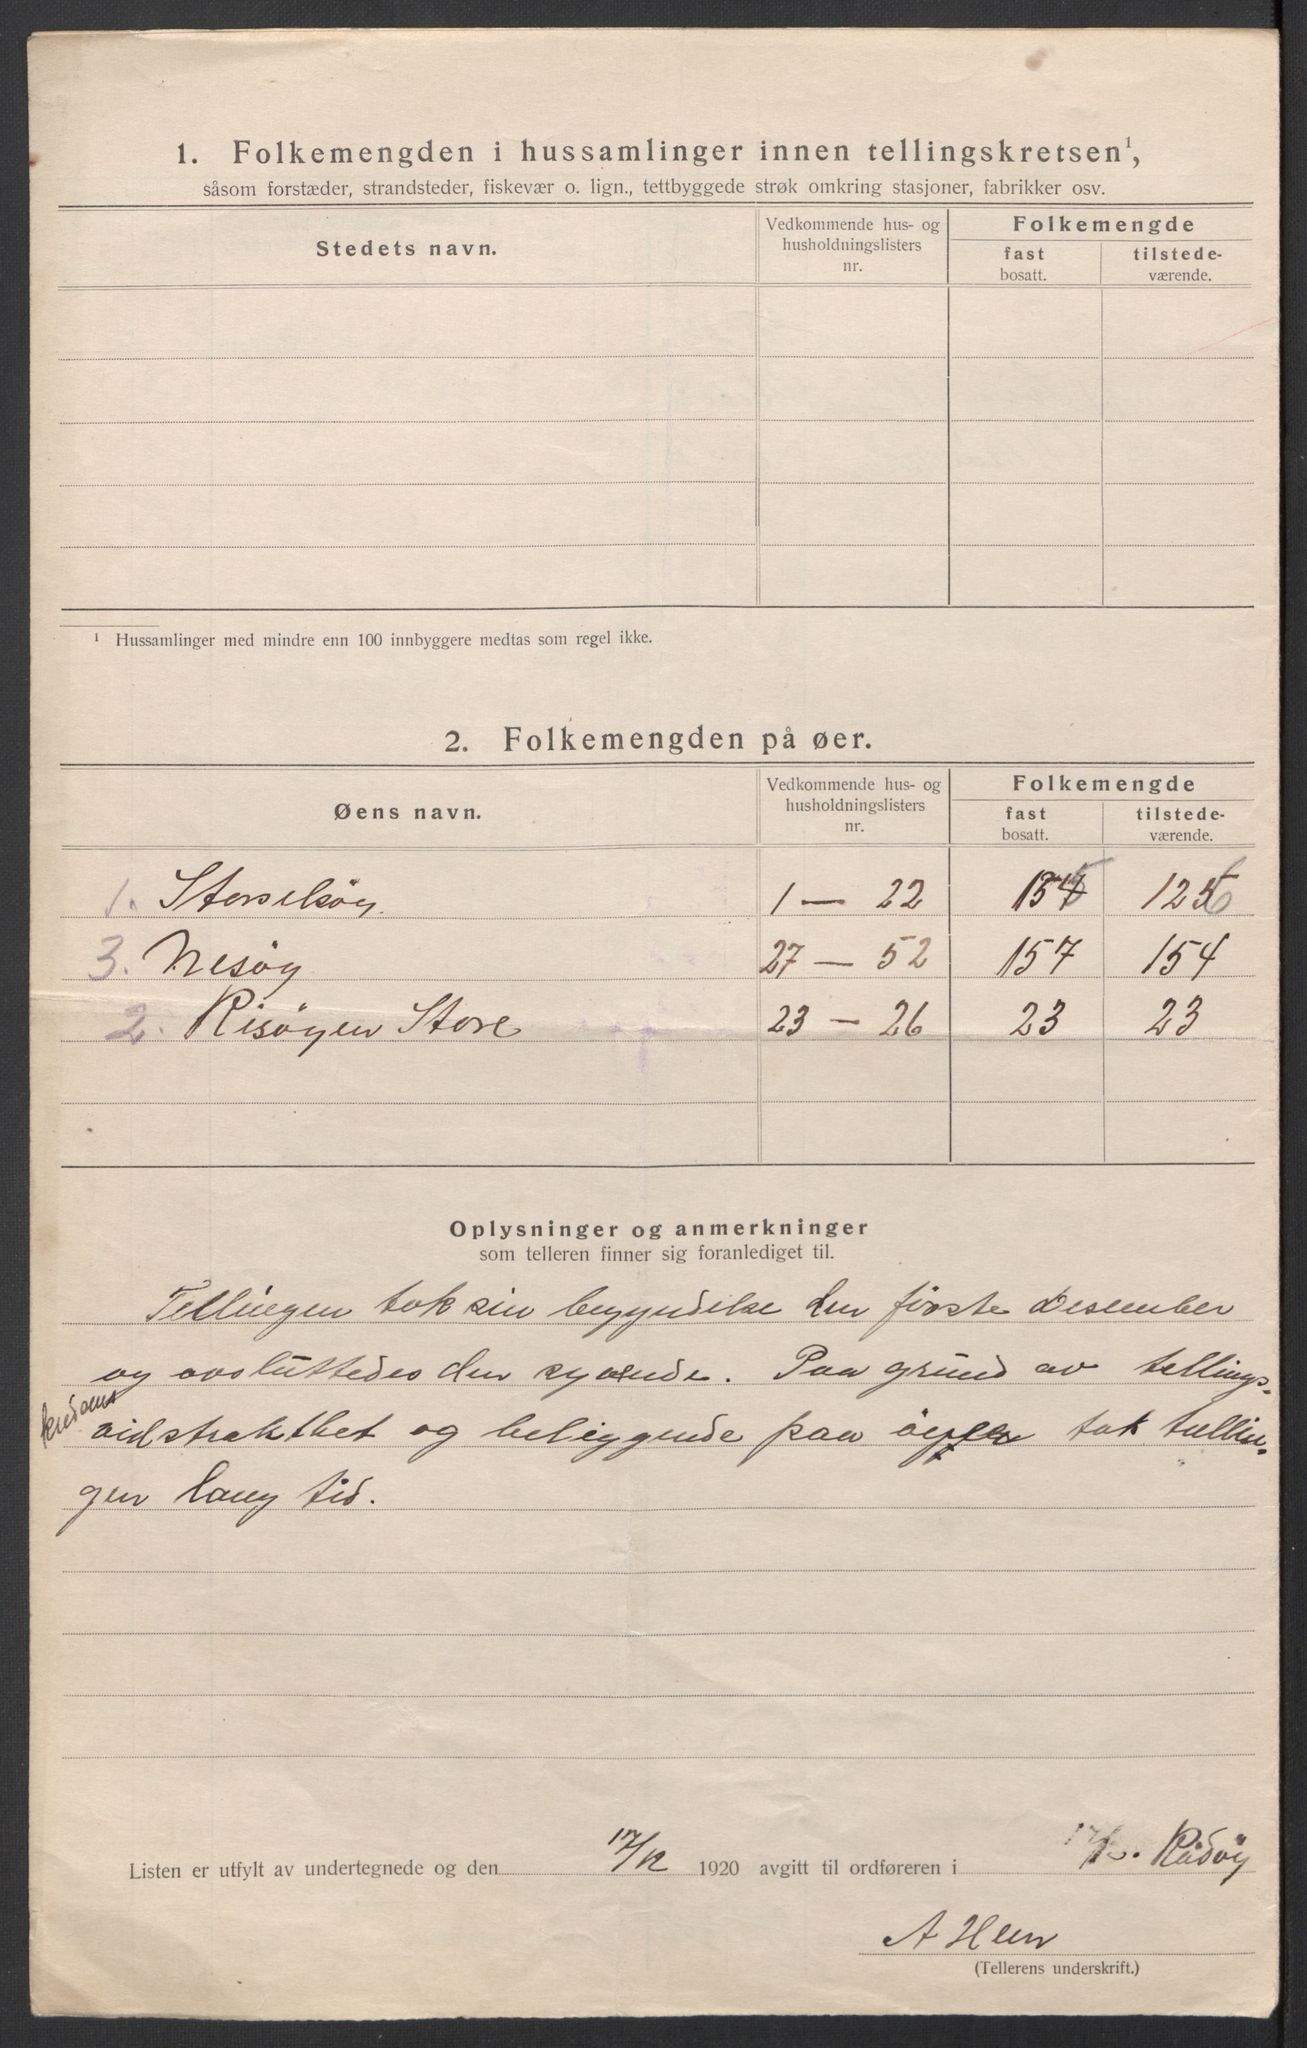 1. Folkemengden i hussamlinger innen tellingskretsen¹,
såsom forstæder, strandsteder, fiskevær o. lign., tettbyggede strøk omkring stasjoner, fabrikker osv.
Stedets navn.
Vedkommende hus- og husholdningslisters nr.
Folkemengde
fast bosatt.
tilstede-værende.
¹ Hussamlinger med mindre enn 100 innbyggere medtas som regel ikke.
2. Folkemengden på øer.
Øens navn.
Vedkommende hus- og husholdningslisters nr.
Folkemengde
fast bosatt.
tilstede-værende.
1. Storselsöy 1 — 22
3. Nesöy 27 — 52 157 154
2. Risöyen Store 23 — 26 23 23
Oplysninger og anmerkninger
som telleren finner sig foranlediget til.
Tellingen tok sin begyndelse den förste desember
og avsluttedes den syvende. Paa grund av tellings-
og beliggende paa tok tellin-
gen lang tid.
Listen er utfylt av undertegnede og den 17/12 1920 avgitt til ordføreren i Rödöy
A Heen
(Tellerens underskrift.)